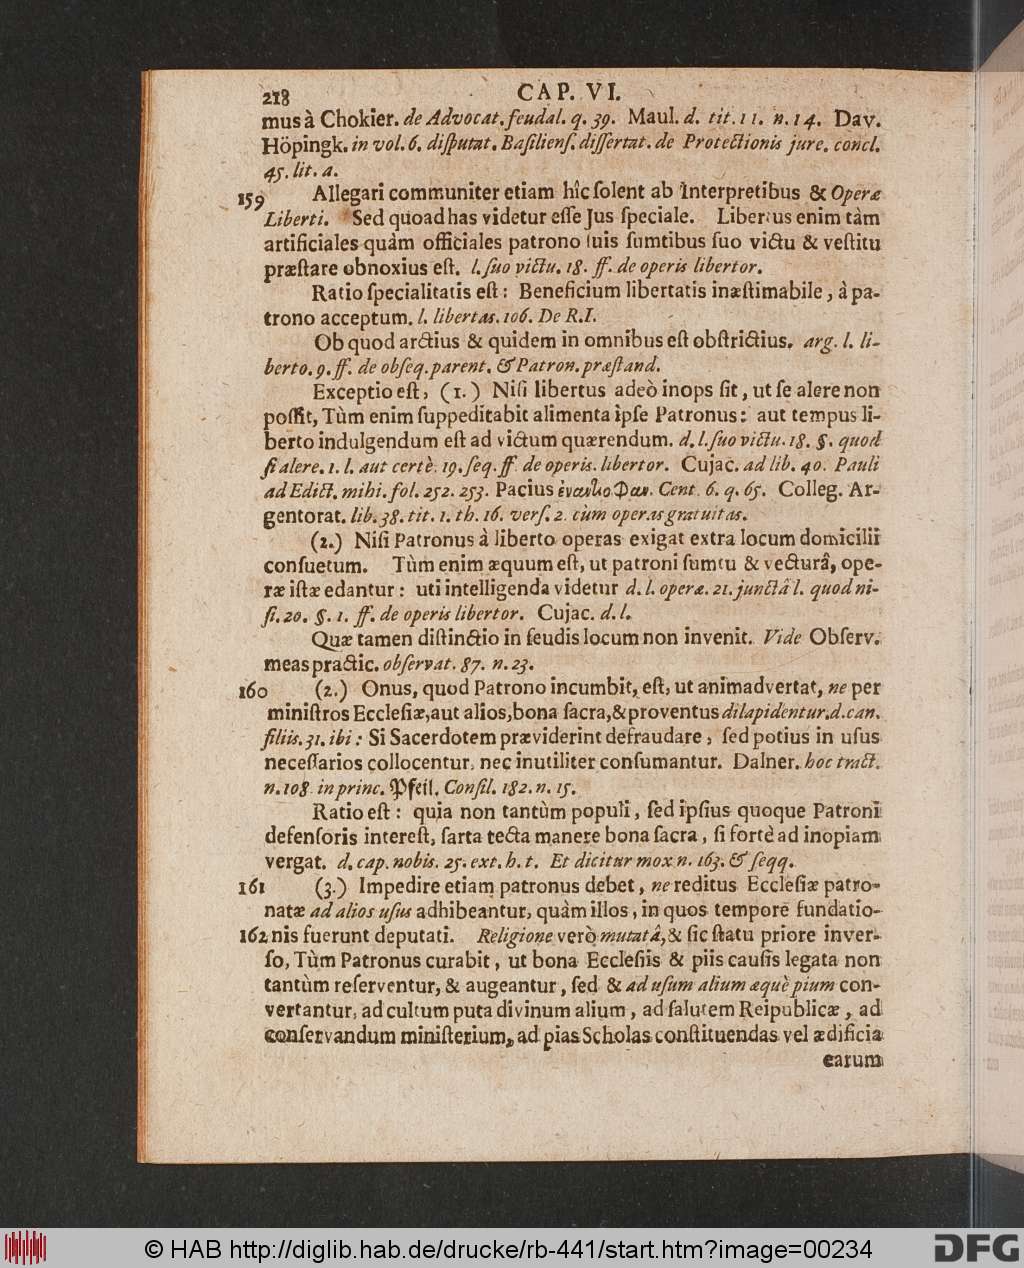 218 CAP. VI.
mus à Chokier. de Advocat. feudal. q. 39. Maul. d. tit. 11. n. 14. Dav.
Höpingk. in vol. 6. diſputat. Baſilienſ. diſſertat. de Protectionis jure. concl.
45. lit. a.
159 Allegari communiter etiam hîc ſolent ab Interpretibus & Operæ
Liberti. Sed quoad has videtur eſſe Jus ſpeciale. Libertus enim tàm
artificiales quàm officiales patrono ſuis ſumtibus ſuo victu & veſtitu
præſtare obnoxius eſt. l. ſuo victu. 18. ff. de operis libertor.
Ratio ſpecialitatis eſt: Beneficium libertatis inæſtimabile, à pa-
trono acceptum. l. libertas. 106. De R.I.
Ob quod arctius & quidem in omnibus eſt obſtrictius. arg. l. li-
berto. 9. ff. de obſeq. parent. & Patron. præſtand.
Exceptio eſt, (1.) Niſi libertus adeò inops ſit, ut ſe alere non
poſſit, Tùm enim ſuppeditabit alimenta ipſe Patronus: aut tempus li-
berto indulgendum eſt ad victum quærendum. d. l. ſuo victu. 18. §. quod
ſi alere. 1. l. aut certè. 19. ſeq. ff. de operis. libertor. Cujac. ad lib. 40. Pauli
ad Edict. mihi. fol. 252. 253. Pacius Cent. 6. q. 65. Colleg. Ar-
gentorat. lib. 38. tit. 1. th. 16. verſ. 2. cùm operas gratuitas.
(2.) Niſi Patronus à liberto operas exigat extra locum domicilii
conſuetum. Tùm enim æquum eſt, ut patroni ſumtu & vecturâ, ope-
ræ iſtæ edantur: uti intelligenda videtur d. l. operæ. 21. junctâ l. quod ni-
ſi. 20. §. 1. ff. de operis libertor. Cujac. d. l.
Quæ tamen diſtinctio in feudis locum non invenit. Vide Obſerv.
meas practic. obſervat. 87. n. 23.
160 (2.) Onus, quod Patrono incumbit, eſt, ut animadvertat, ne per
miniſtros Eccleſiæ, aut alios, bona ſacra, & proventus dilapidentur. d. can.
filiis. 31. ibi: Si Sacerdotem præviderint defraudare, ſed potius in uſus
neceſſarios collocentur, nec inutiliter conſumantur. Dalner. hoc tract.
n. 108. in princ. Pfeil. Conſil. 182. n. 15.
Ratio eſt: quia non tantùm populi, ſed ipſius quoque Patroni
defenſoris intereſt, ſarta tecta manere bona ſacra, ſi fortè ad inopiam
vergat. d. cap. nobis. 25. ext. h. t. Et dicitur mox n. 163. & ſeqq.
161 (3.) Impedire etiam patronus debet, ne reditus Eccleſiæ patro-
natæ ad alios uſus adhibeantur, quàm illos, in quos tempore fundatio-
162 nis fuerunt deputati. Religione verò mutatâ, & ſic ſtatu priore inver-
ſo, Tùm Patronus curabit, ut bona Eccleſiis & piis cauſis legata non
tantùm reſerventur, & augeantur, ſed & ad uſum alium æquè pium con-
vertantur, ad cultum puta divinum alium, ad ſalutem Reipublicæ, ad
conſervandum miniſterium, ad pias Scholas conſtituendas vel ædificia
earum
© HAB http://diglib.hab.de/drucke/rb-441/start.htm?image=00234
DFG